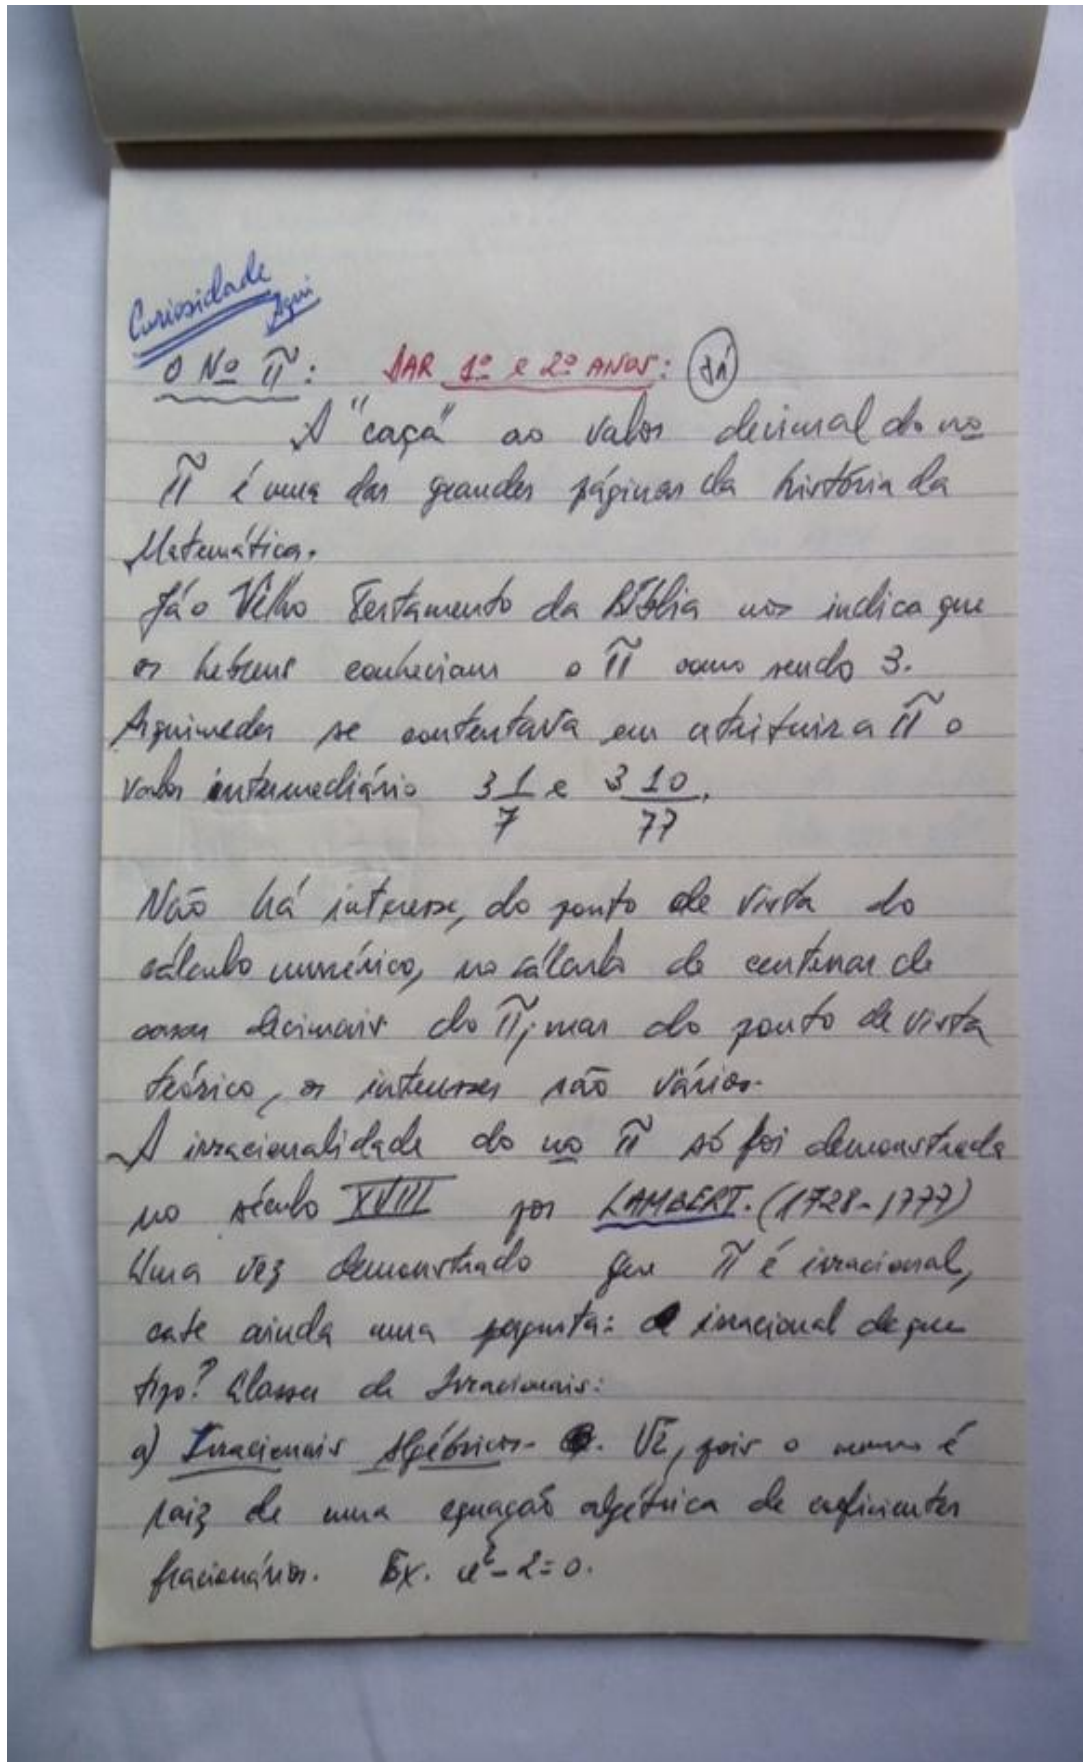 Curiosidade
Aqui
O Nº π: DAR 1º e 2º ANOS: (Já)
A "caça" ao valor decimal do nº
π é uma das grandes páginas da história da
Matemática.
Já o Velho Testamento da Bíblia nos indica que
os hebreus conheciam o π como sendo 3.
Arquimedes se contentava em atribuir a π o
valor intermediário 3 1/7 e 3 10/77.
Não há interesse, do ponto de vista do
cálculo numérico, no cálculo de centenas de
casas decimais do π; mas do ponto de vista
teórico, os interesses são vários.
A irracionalidade do nº π só foi demonstrada
no século XVIII por LAMBERT. (1728-1777)
Uma vez demonstrado que π é irracional,
cabe ainda uma pergunta: irracional de que
tipo? Classes de Irracionais:
a) Irracionais Algébricos- √2, pois o mesmo é
raiz de uma equação algébrica de coeficientes
fracionários. Ex. x²-2=0.